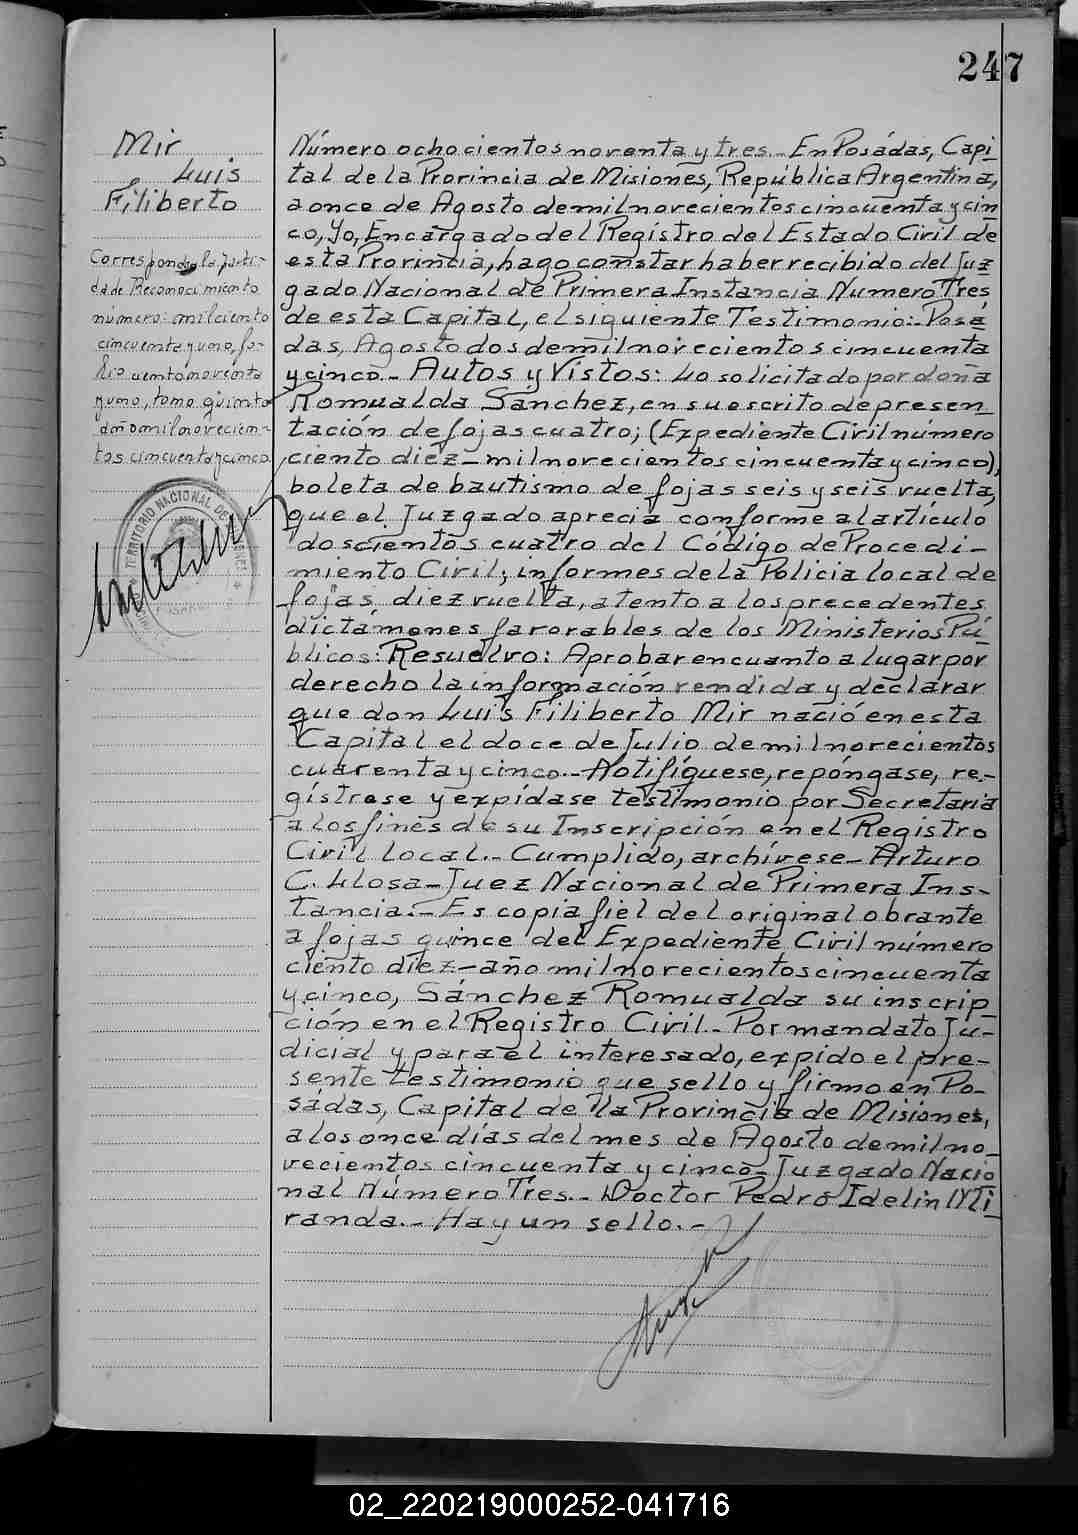 247
Mir
Luis
Filiberto
Corresponde la parti-
da de Reconocimiento
número: mil ciento
cincuenta y uno, fo-
lio ciento noventa
y uno, tomo quinto
año mil novecien-
tos cincuenta y cinco
Número ochocientos noventa y tres.- En Posadas, Capi-
tal de la Provincia de Misiones, República Argentina,
a once de Agosto de mil novecientos cincuenta y cin
co, Yo, Encargado del Registro del Estado Civil de
esta Provincia, hago constar haber recibido del Juz
gado Nacional de Primera Instancia Numero Tres
de esta Capital, el siguiente Testimonio:- Posa
das, Agosto dos de mil novecientos cincuenta
y cinco.- Autos y Vistos: Lo solicitado por doña
Romualda Sánchez, en su escrito de presen
tación de fojas cuatro; (Expediente Civil número
ciento diez- mil novecientos cincuenta y cinco),
boleta de bautismo de fojas seis y seis vuelta,
que el Juzgado aprecia conforme al artículo
doscientos cuatro del Código de Procedi-
miento Civil; informes de la Policia local de
fojas diez vuelta, atento a los precedentes
dictámenes favorables de los Ministerios Pú
blicos: Resuelvo: Aprobar en cuanto a lugar por
derecho la información rendida y declarar
que don Luis Filiberto Mir nació en esta
Capital el doce de Julio de mil novecientos
cuarenta y cinco.- Notifíquese, repóngase, re-
gístrese y expídase testimonio por Secretaria
a los fines de su Inscripción en el Registro
Civil local.- Cumplido, archívese- Arturo
C. Llosa- Juez Nacional de Primera Ins-
tancia.- Es copia fiel del original obrante
a fojas quince del Expediente Civil número
ciento diez- año mil novecientos cincuenta
y cinco, Sánchez Romualda su inscrip
ción en el Registro Civil.- Por mandato Ju-
dicial y para el interesado, expido el pre-
sente testimonio que sello y firmo en Po-
sadas, Capital de la Provincia de Misiones,
a los once días del mes de Agosto de mil no-
vecientos cincuenta y cinco- Juzgado Nacio
nal Número Tres.- Doctor Pedro Idelin Mi
randa.- Hay un sello.-
TERRITORIO NACIONAL DE MISIONES
02_220219000252-041716